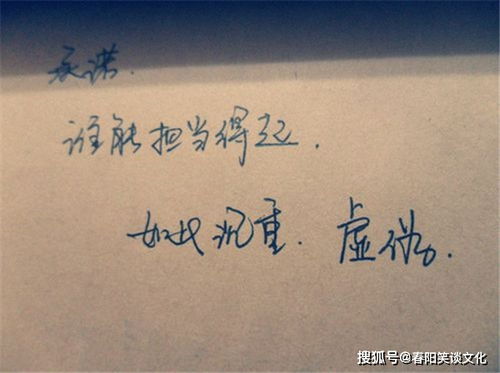 承诺.
谁能担当得起.
如此沉重. 虚伪.
搜狐号@春阳笑谈文化